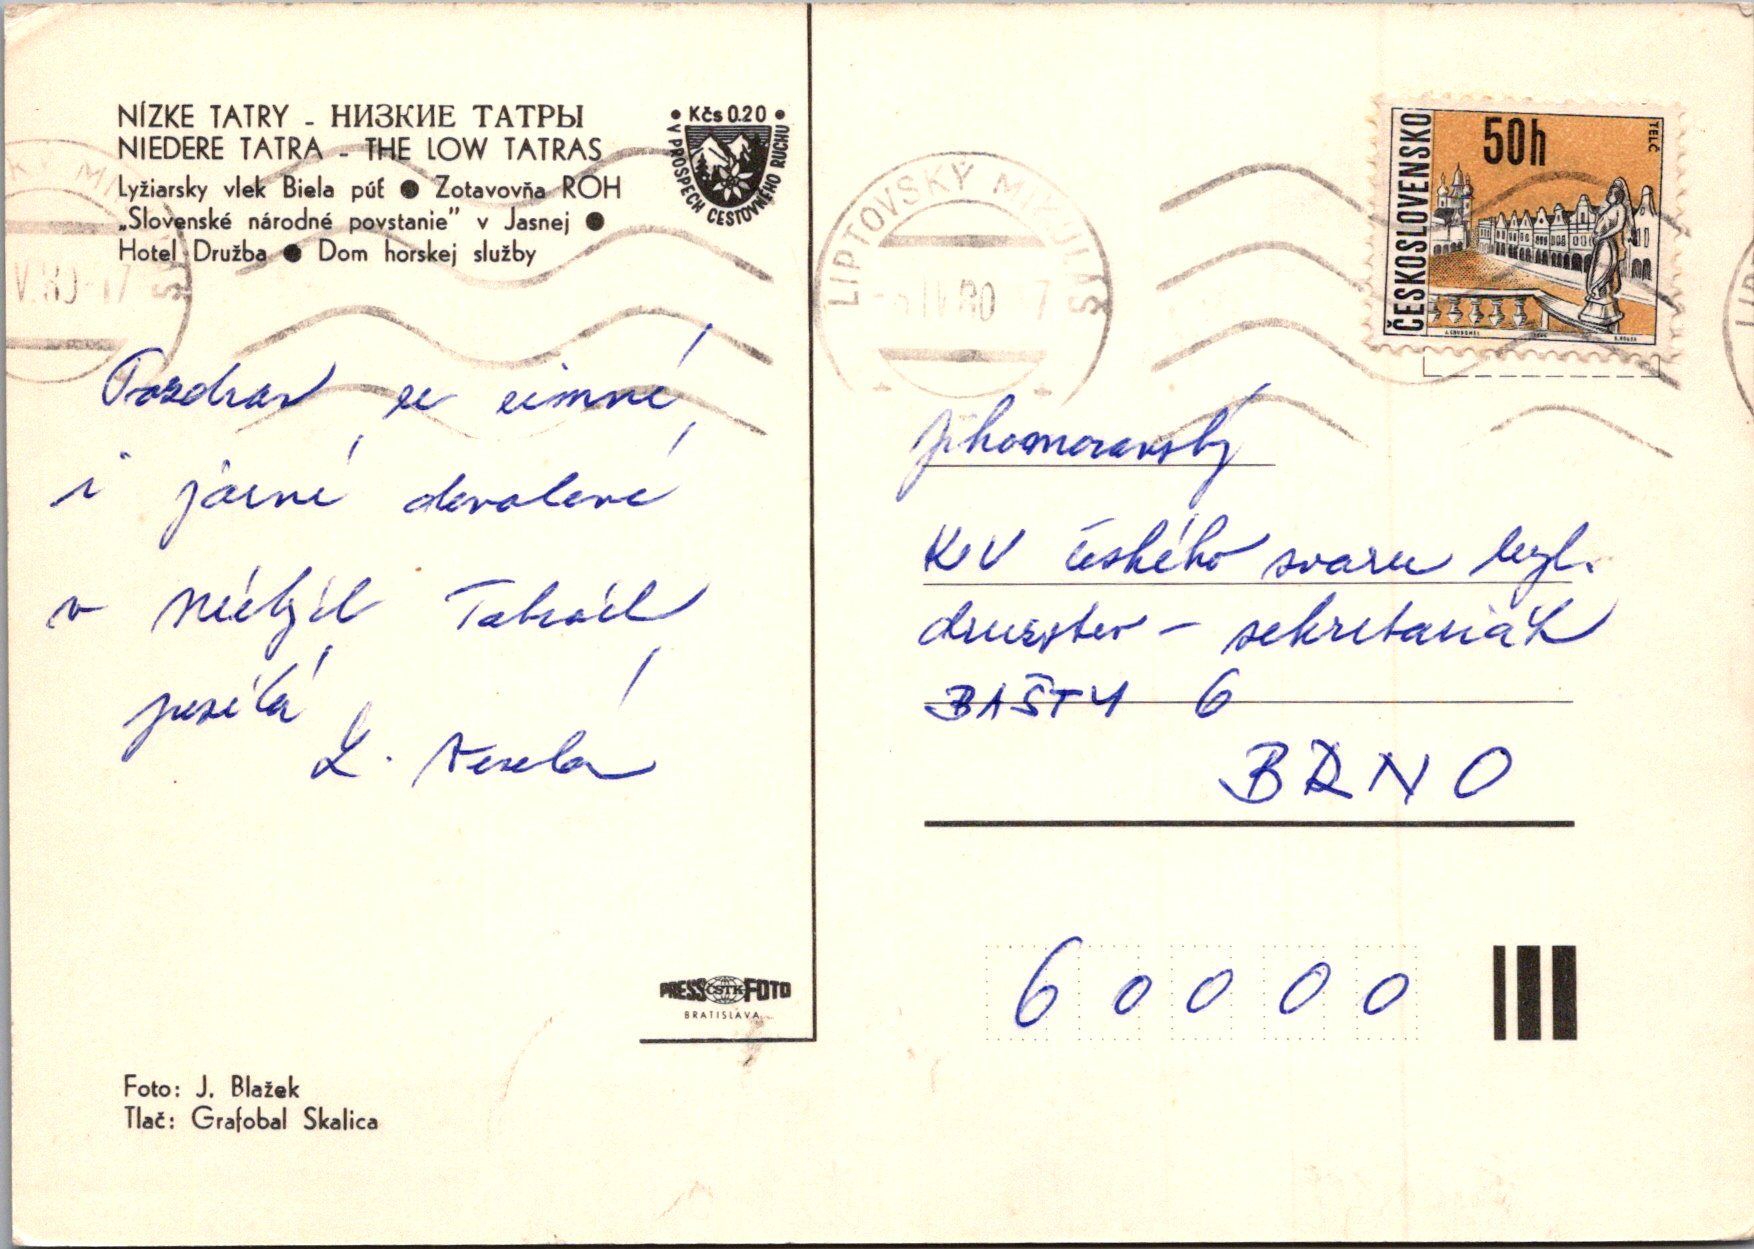 NÍZKE TATRY - НИЗКИЕ ТАТРЫ
NIEDERE TATRA - THE LOW TATRAS
Lyžiarsky vlek Biela púť ● Zotavovňa ROH
„Slovenské národné povstanie" v Jasnej ●
Hotel Družba ● Dom horskej služby
• Kčs 0.20 •
V PROSPECH CESTOVNÉHO RUCHU
Pozdrav ze zimné
i jarní dovolené
v Nízkých Tatrách
posílá
L. Veselá
PRESS ČSTK FOTO
BRATISLAVA
Foto: J. Blažek
Tlač: Grafobal Skalica
LIPTOVSKÝ MIKULÁŠ
IV. 80 - 7
ČESKOSLOVENSKO
50h
TELČ
Jihomoravský
KV českého svazu
družstev - sekretariát
BAŠTY 6
BRNO
60000